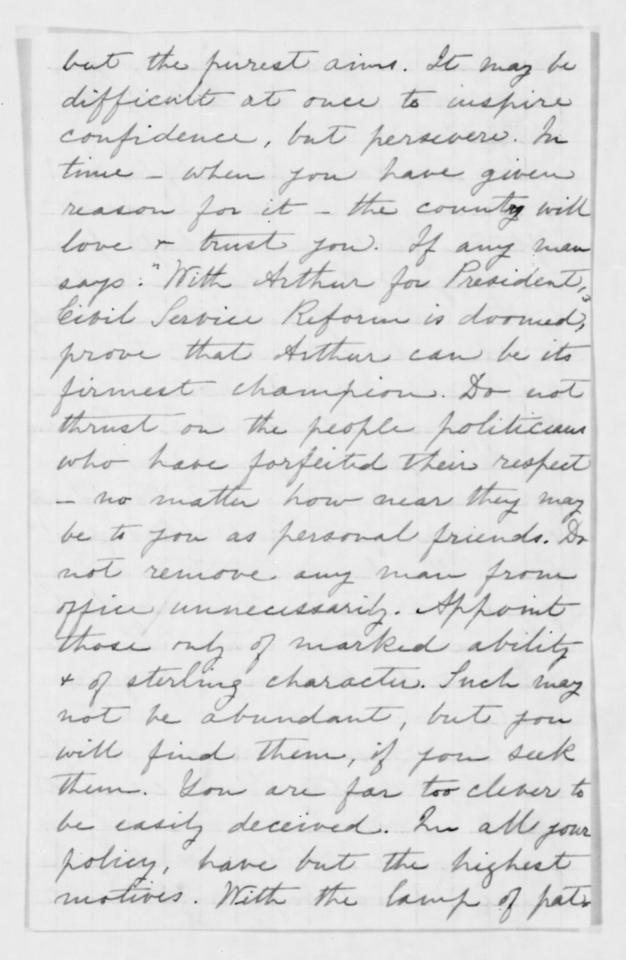 but the purest aims. It may be
difficult at once to inspire
confidence, but persevere. In
time – when you have given
reason for it – the country will
love & trust you. If any man
says: "With Arthur for President,
Civil Service Reform is doomed,"
prove that Arthur can be its
firmest champion. Do not
thrust on the people politicians
who have forfeited their respect
– no matter how near they may
be to you as personal friends. Do
not remove any man from
office unnecessarily. Appoint
those only of marked ability
& of sterling character. Such may
not be abundant, but you
will find them, if you seek
them. You are far too clever to
be easily deceived. In all your
policy, have but the highest
motives. With the lamp of pat-